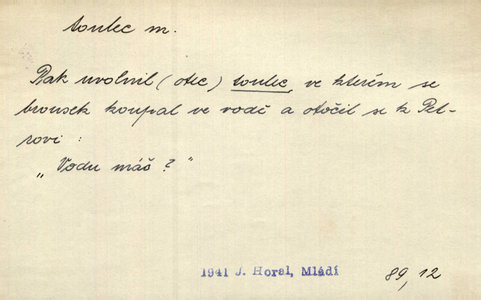 toulec m.
Pak uvolnil (otec) toulec, ve kterém se
brousek koupal ve vodě a otočil se k Pet-
rovi:
„Vodu máš?"
1941 J. Horal, Mládí
89,12